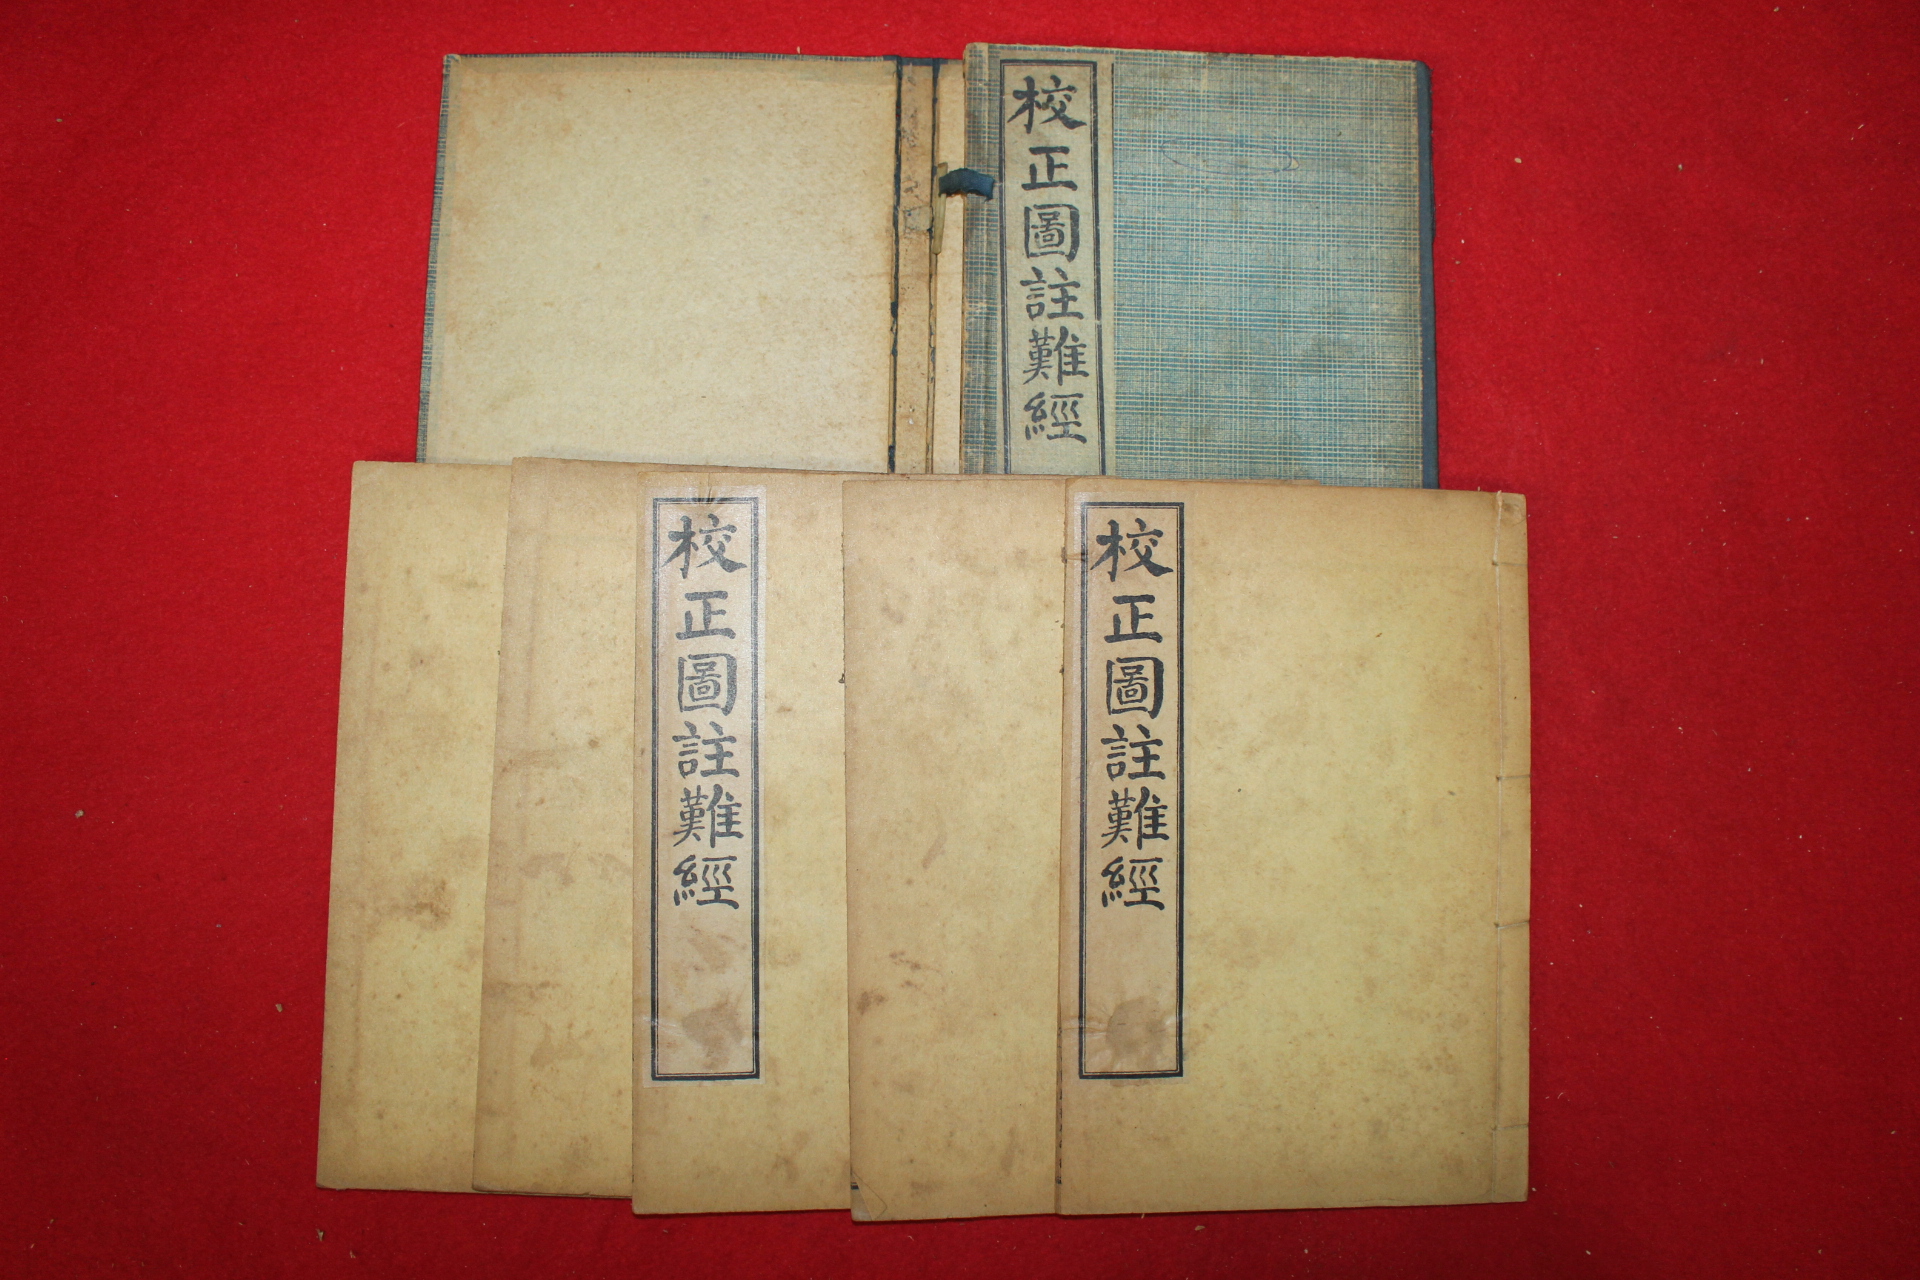 校正圖註難經
校正圖註難經
校正圖註難經